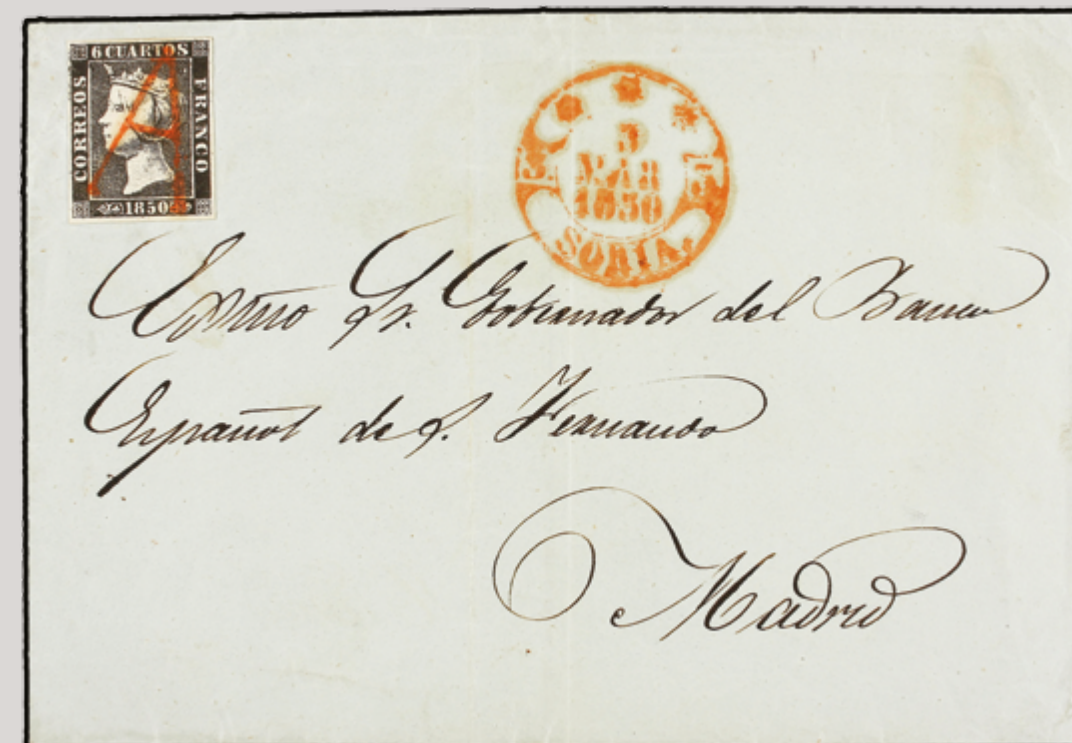 6 CUARTOS
CORREOS
FRANCO
1850
A
3
MAR
1850
SORIA.
Exmo Sr. Gobernador del Banco
Español de S. Fernando
Madrid